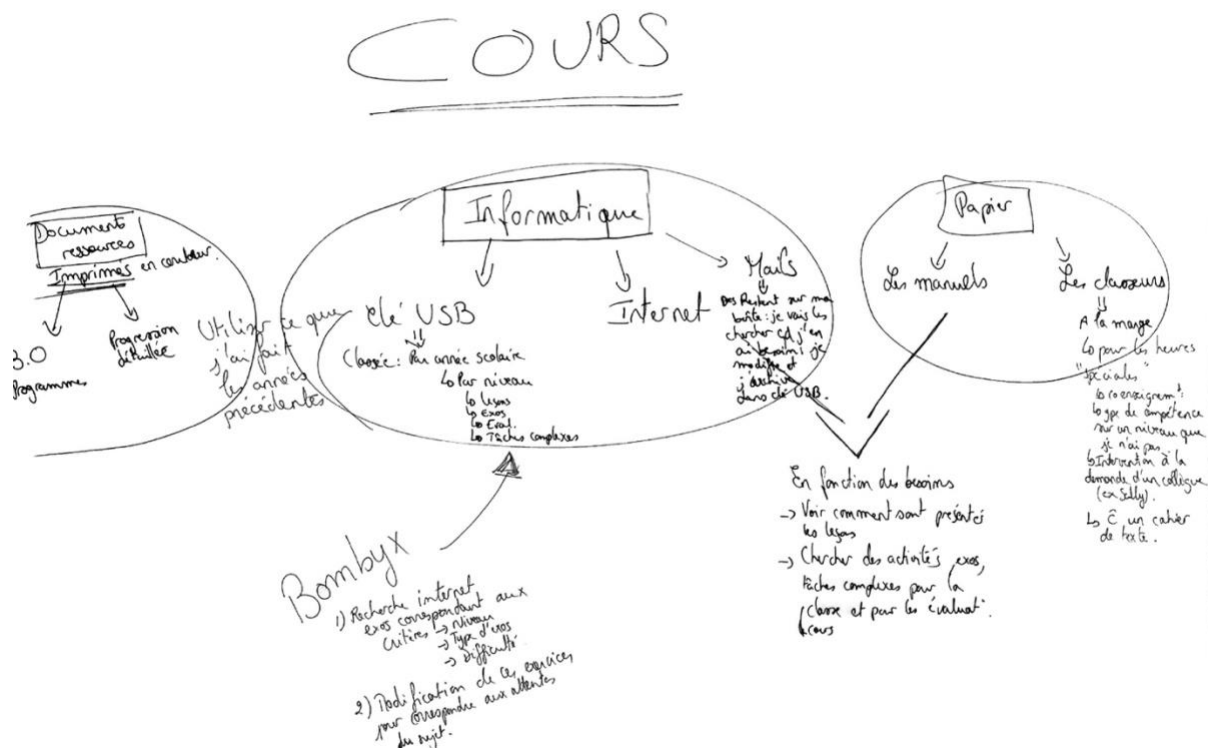 COURS
Document
ressources
Imprimés en couleur.
B.O
Programmes
Progression
détaillée
Utiliser ce que
j'ai fait
les années
précédentes
Informatique
Clé USB
Classée : Par année scolaire
↳ Par niveau
↳ leçons
↳ Exos
↳ Eval.
↳ Tâches complexes
Internet
Mails
Restent sur ma
boîte : je vais les
chercher qd j'en
ai besoin : je
modifie et
j'archive
dans clé USB.
Papier
Les manuels
Les classeurs
A la marge
↳ pour les heures
"spéciales"
↳ coenseignemt
↳ type de compétence
sur un niveau que
je n'ai pas
↳ Intervention à la
demande d'un collègue
(ex
↳ un cahier
de texte.
En fonction des besoins
→ Voir comment sont présentés
les leçons
→ Chercher des activités, exos,
tâches complexes pour la
classe et pour les évaluat°
cours
Bombyx
1) Recherche internet
exos correspondant aux
critères → Niveau
→ Type d'exos
→ Difficulté.
2) Modification de ces exercices
pour correspondre aux attentes
du sujet.